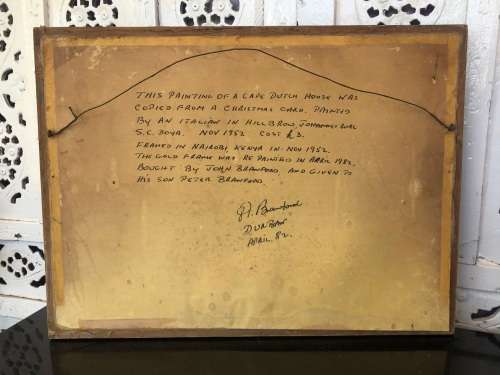 THIS PAINTING OF A CAPE DUTCH HOUSE WAS
COPIED FROM A CHRISTMAS CARD, PAINTED
BY AN ITALIAN IN HILLBROW, JOHANNESBURG
S.C. BOYA. NOV 1952 COST £3.
FRAMED IN NAIROBI, KENYA IN NOV 1952.
THE GOLD FRAME WAS RE PAINTED IN APRIL 1982,
BOUGHT BY JOHN BRANFORD AND GIVEN TO
HIS SON PETER BRANFORD
J. Branford
DURBAN
APRIL 82.